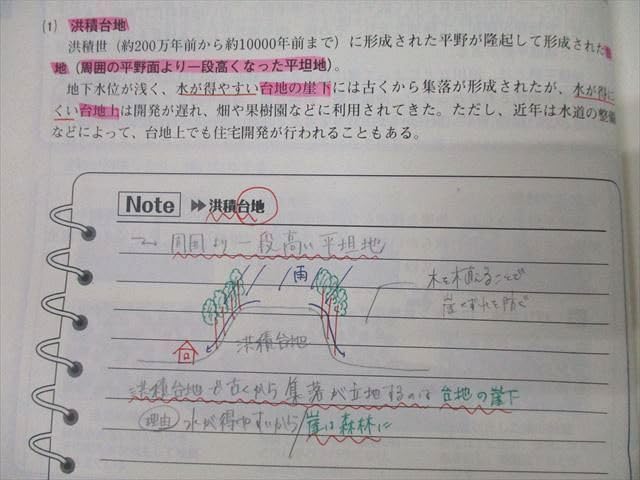 (1) 洪積台地
洪積世（約200万年前から約10000年前まで）に形成された平野が隆起して形成された
地（周囲の平野面より一段高くなった平坦地）。
地下水位が浅く、水が得やすい台地の崖下には古くから集落が形成されたが、水が得に
くい台地上は開発が遅れ、畑や果樹園などに利用されてきた。ただし、近年は水道の整備
などによって、台地上でも住宅開発が行われることもある。
Note ▶▶洪積台地
→ 周囲より一段高い平坦地
雨
木を植えることで
崖くずれを防ぐ
洪積台地
洪積台地で古くから集落が立地するのは 台地の崖下
理由 水が得やすいから/崖は森林に